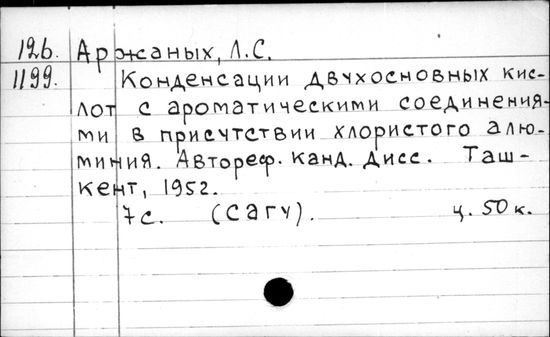 12б. Аржаных, Л.С.
1199. Конденсации двухосновных кис-
лот с ароматическими соединения-
ми в присутствии хлористого алю-
миния. Автореф. канд. дисс. Таш-
кент, 1952.
7с. (САГУ). ц. 50 к.